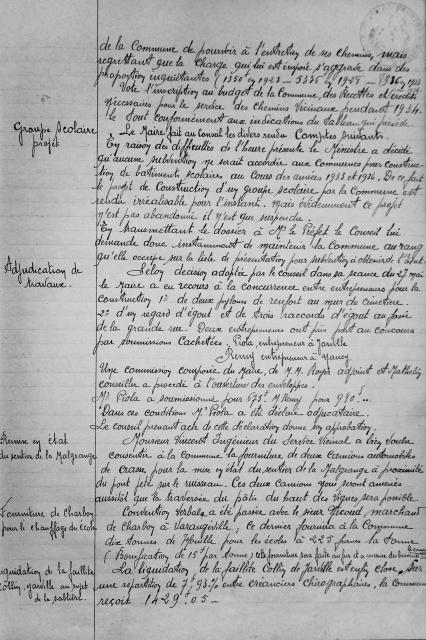 de la Commune de pourvoir à l'entretien de ses chemins, mais
regrettant que la Charge qui lui est imposée s'aggrave dans des
proportions inquiétantes (1350f en 1923 — 5335 en 1928 —
Vote l'inscription au budget de la Commune, des Recettes et crédits
nécessaires pour le service des Chemins Vicinaux pendant 1934.
le tout conformément aux indications du tableau qui précède.
Groupe Scolaire
projet
Le Maire fait au Conseil les divers rendus Comptes suivants.
En raison des difficultés de l'heure présente le Ministre a décidé
qu'aucune subvention ne serait accordée aux Communes pour construc-
tion de bâtiments scolaires au Cours des années 1933 et 1934. De ce fait
le projet de Construction d'un groupe scolaire par la Commune est
rendu irréalisable pour l'instant. Mais évidemment ce projet
n'est pas abandonné il n'est que suspendu.
En transmettant le dossier à Mr le Préfet le Conseil lui
demande donc instamment de maintenir la Commune au rang
qu'elle occupe sur la liste de présentation pour subvention à obtenir de l'Etat.
Adjudication de
travaux.
Selon décision adoptée par le conseil dans sa séance du 27 mai
le Maire a eu recours à la concurrence entre entrepreneurs pour la
construction 1º de deux pylones de renfort au mur du cimetière.
2º d'un regard d'égout et de trois raccords d'égout au fossé
de la grande rue. Deux entrepreneurs ont pris part au concours
par soumissions Cachetées. Piola, entrepreneur à Jarville
Remy entrepreneur à Nancy.
Une commission composée du Maire, de M.M. Royer adjoint et
conseiller a procédé à l'ouverture des enveloppes.
Mr Piola a soumissionné pour 675f. M Remy pour 980f.
Dans ces conditions Mr Piola a été déclaré adjudicataire.
Le conseil prenant acte de cette déclaration donne son approbation.
Remise en état
du sentier de la Malgrange
Monsieur Vincent Ingénieur du Service Vicinal a bien voulu
consentir à la Commune la fourniture de deux Camions automobiles
de crasse pour la mise en état du sentier de la Malgrange à proximité
du pont jeté sur le ruisseau. Ces deux camions nous seront amenés
aussitôt que la traversée du pâtis du haut des Vignes sera possible.
Fourniture de Charbon
pour le chauffage des écoles
Convention Verbale a été passée avec le sieur Nicoud, marchand
de Charbon à Varangéville, ce dernier fournira à la Commune
dix tonnes de Houille pour les écoles à 225 francs la tonne
(Bonification de 15f par tonne) cette fourniture sera faite au fur et à mesure des besoins
Liquidation de la faillite
Collin, Jarville au sujet
de la sablière.
La liquidation de la faillite Collin de Jarville est enfin close. Sur
une répartition de 7f,93% entre créanciers chirographaires, la Commune
reçoit 1429f.05.